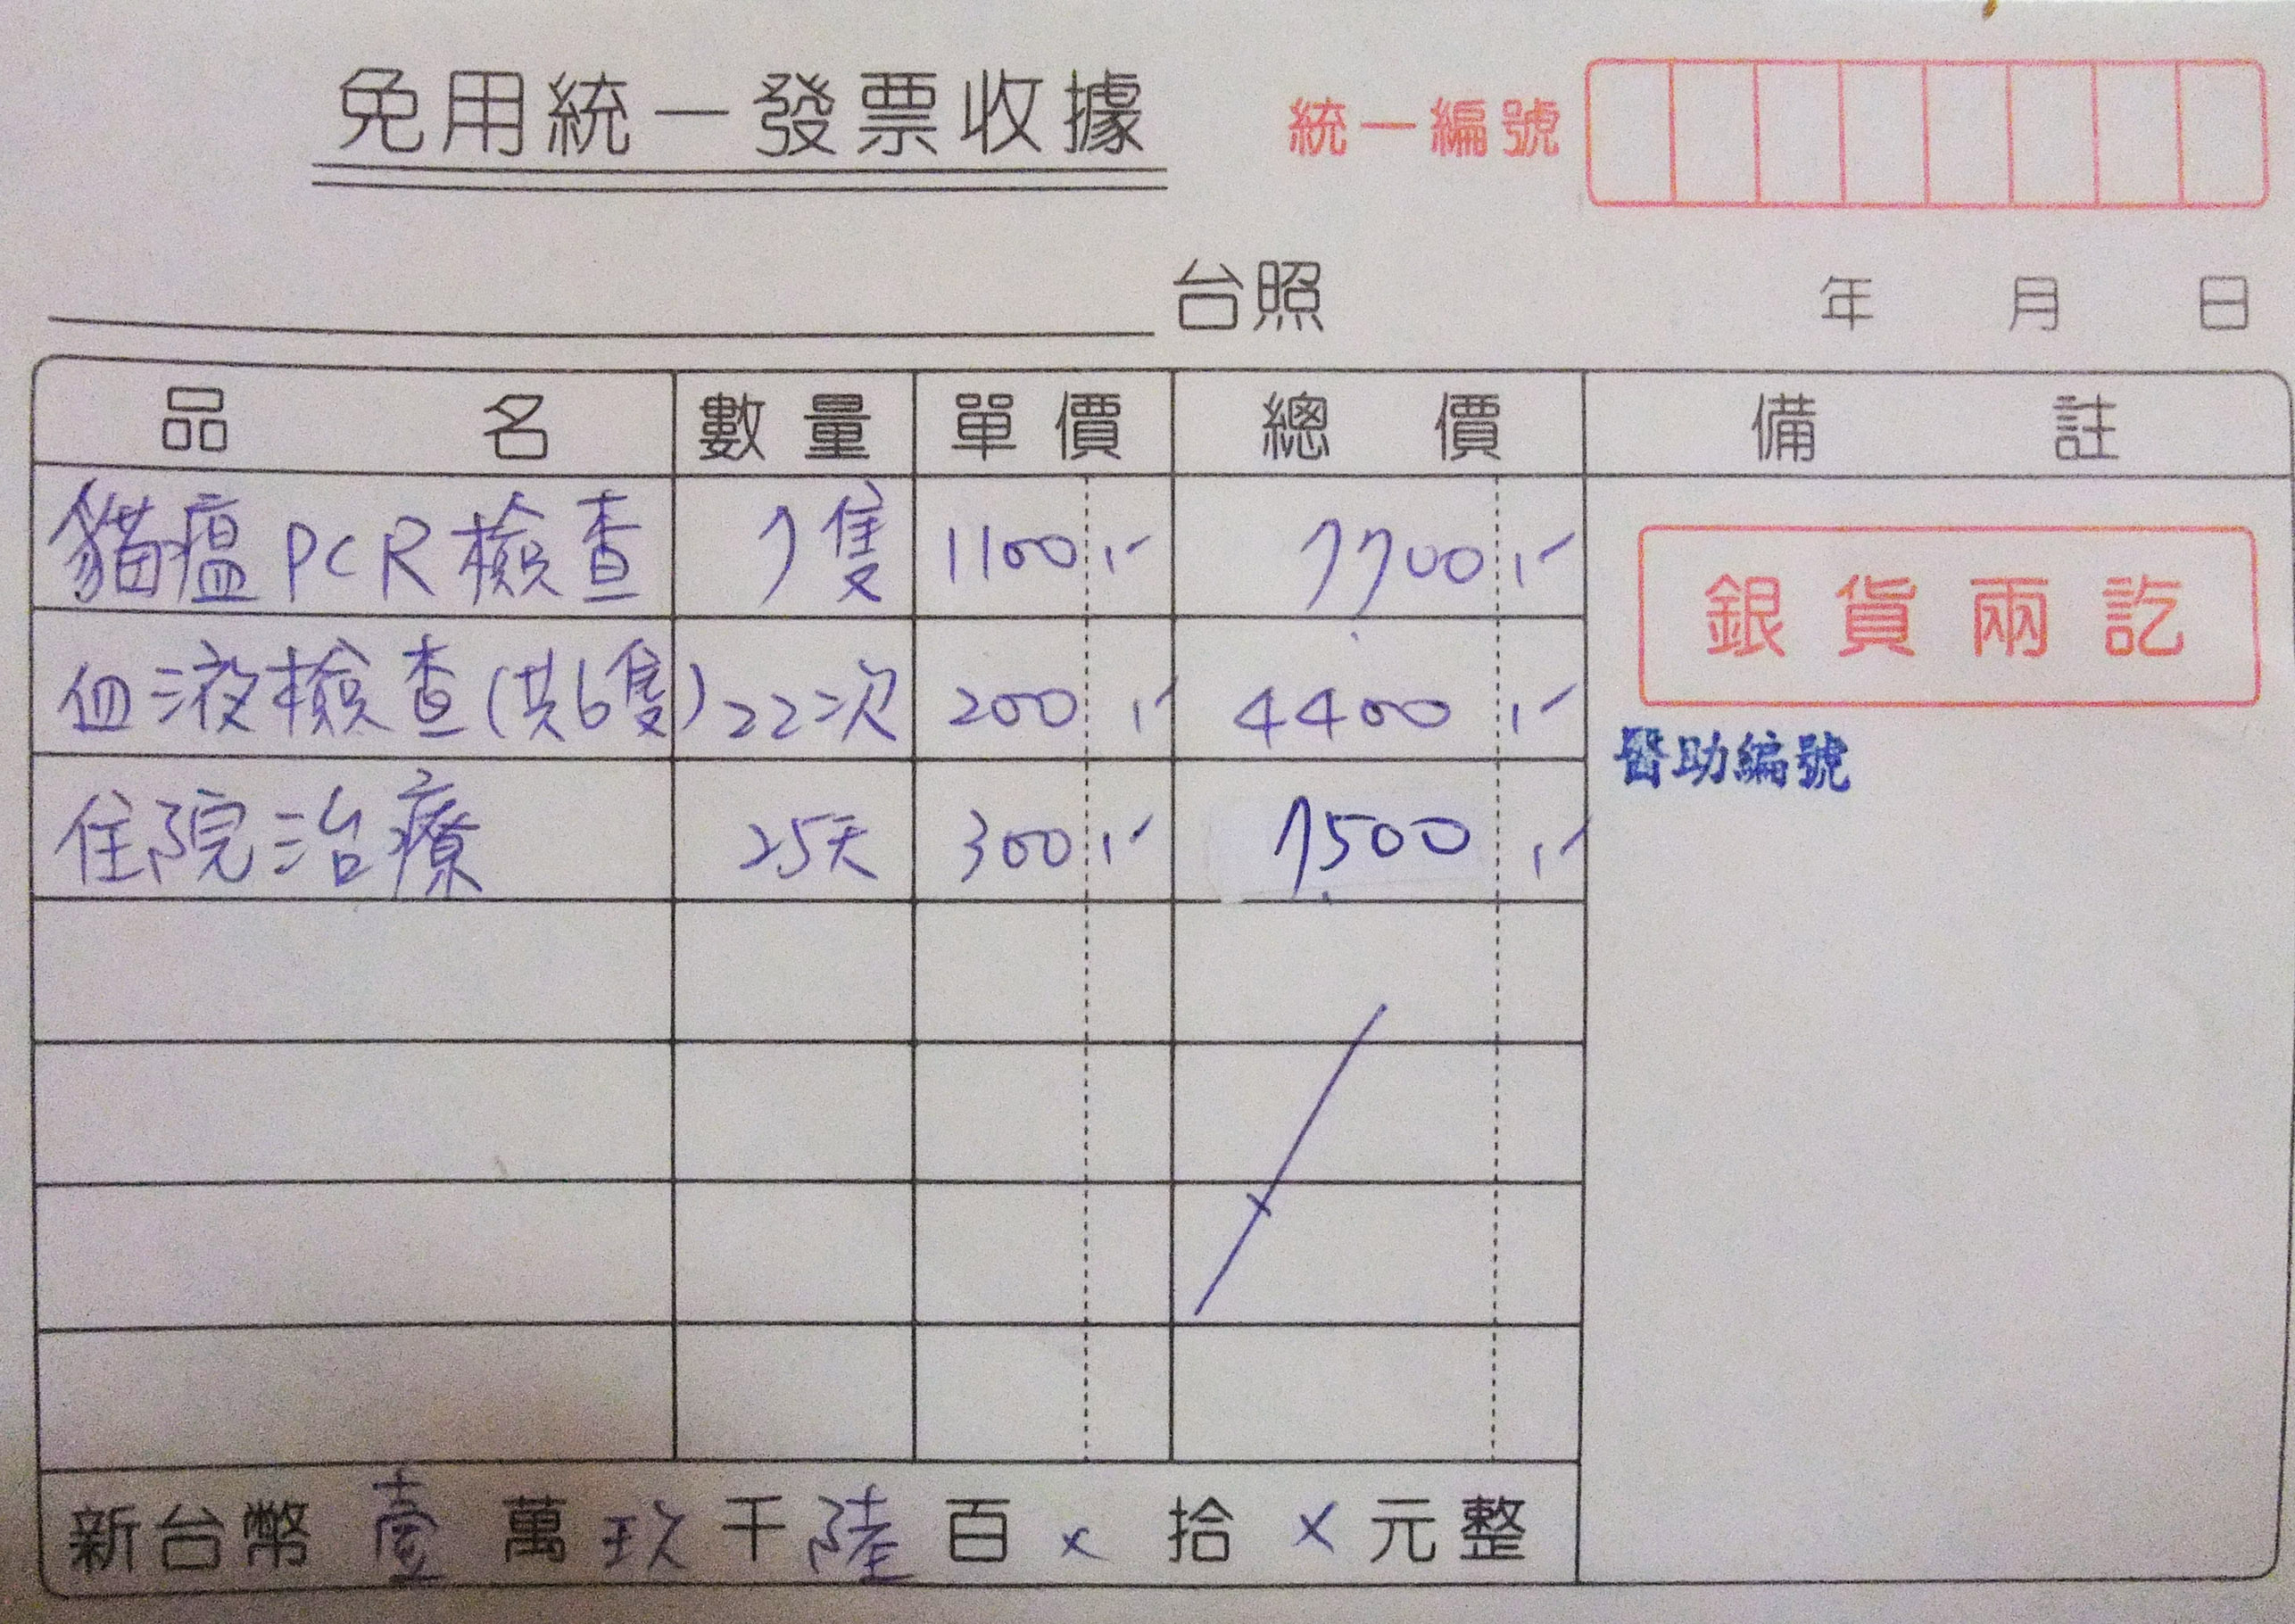 免用統一發票收據 統一編號
台照 年 月 日
品名 數量 單價 總價 備註
貓瘟PCR檢查 7隻 1100,- 7700,-
血液檢查(共6隻) 22次 200,- 4400,-
住院治療 25天 300,- 7500,-
銀貨兩訖
醫助編號
新台幣壹萬玖千陸百×拾×元整